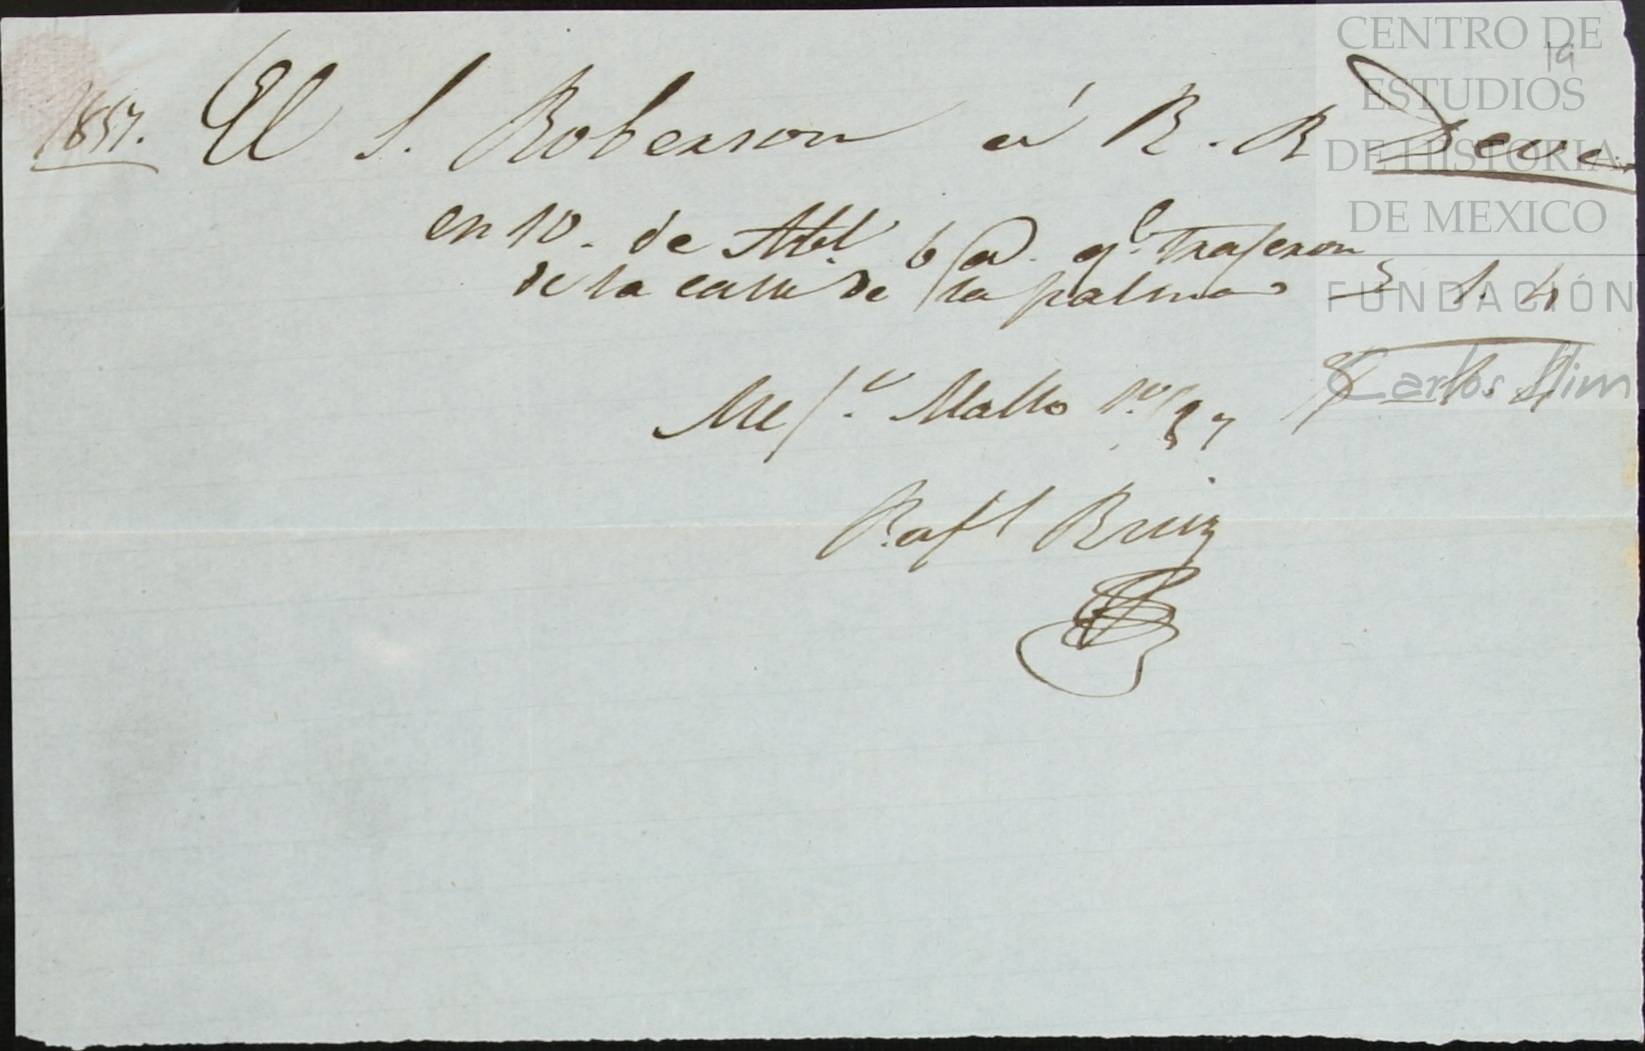 19
1857. El S. Roberson á R. R Deve
en 10. de Abl. 6 @. qe. trajeron
de la calle de la palma 1. 4
Mejco. Mallo 1o/57
Rafl Ruiz
CENTRO DE
ESTUDIOS
DE HISTORIA
DE MEXICO
FUNDACIÓN
Carlos Slim